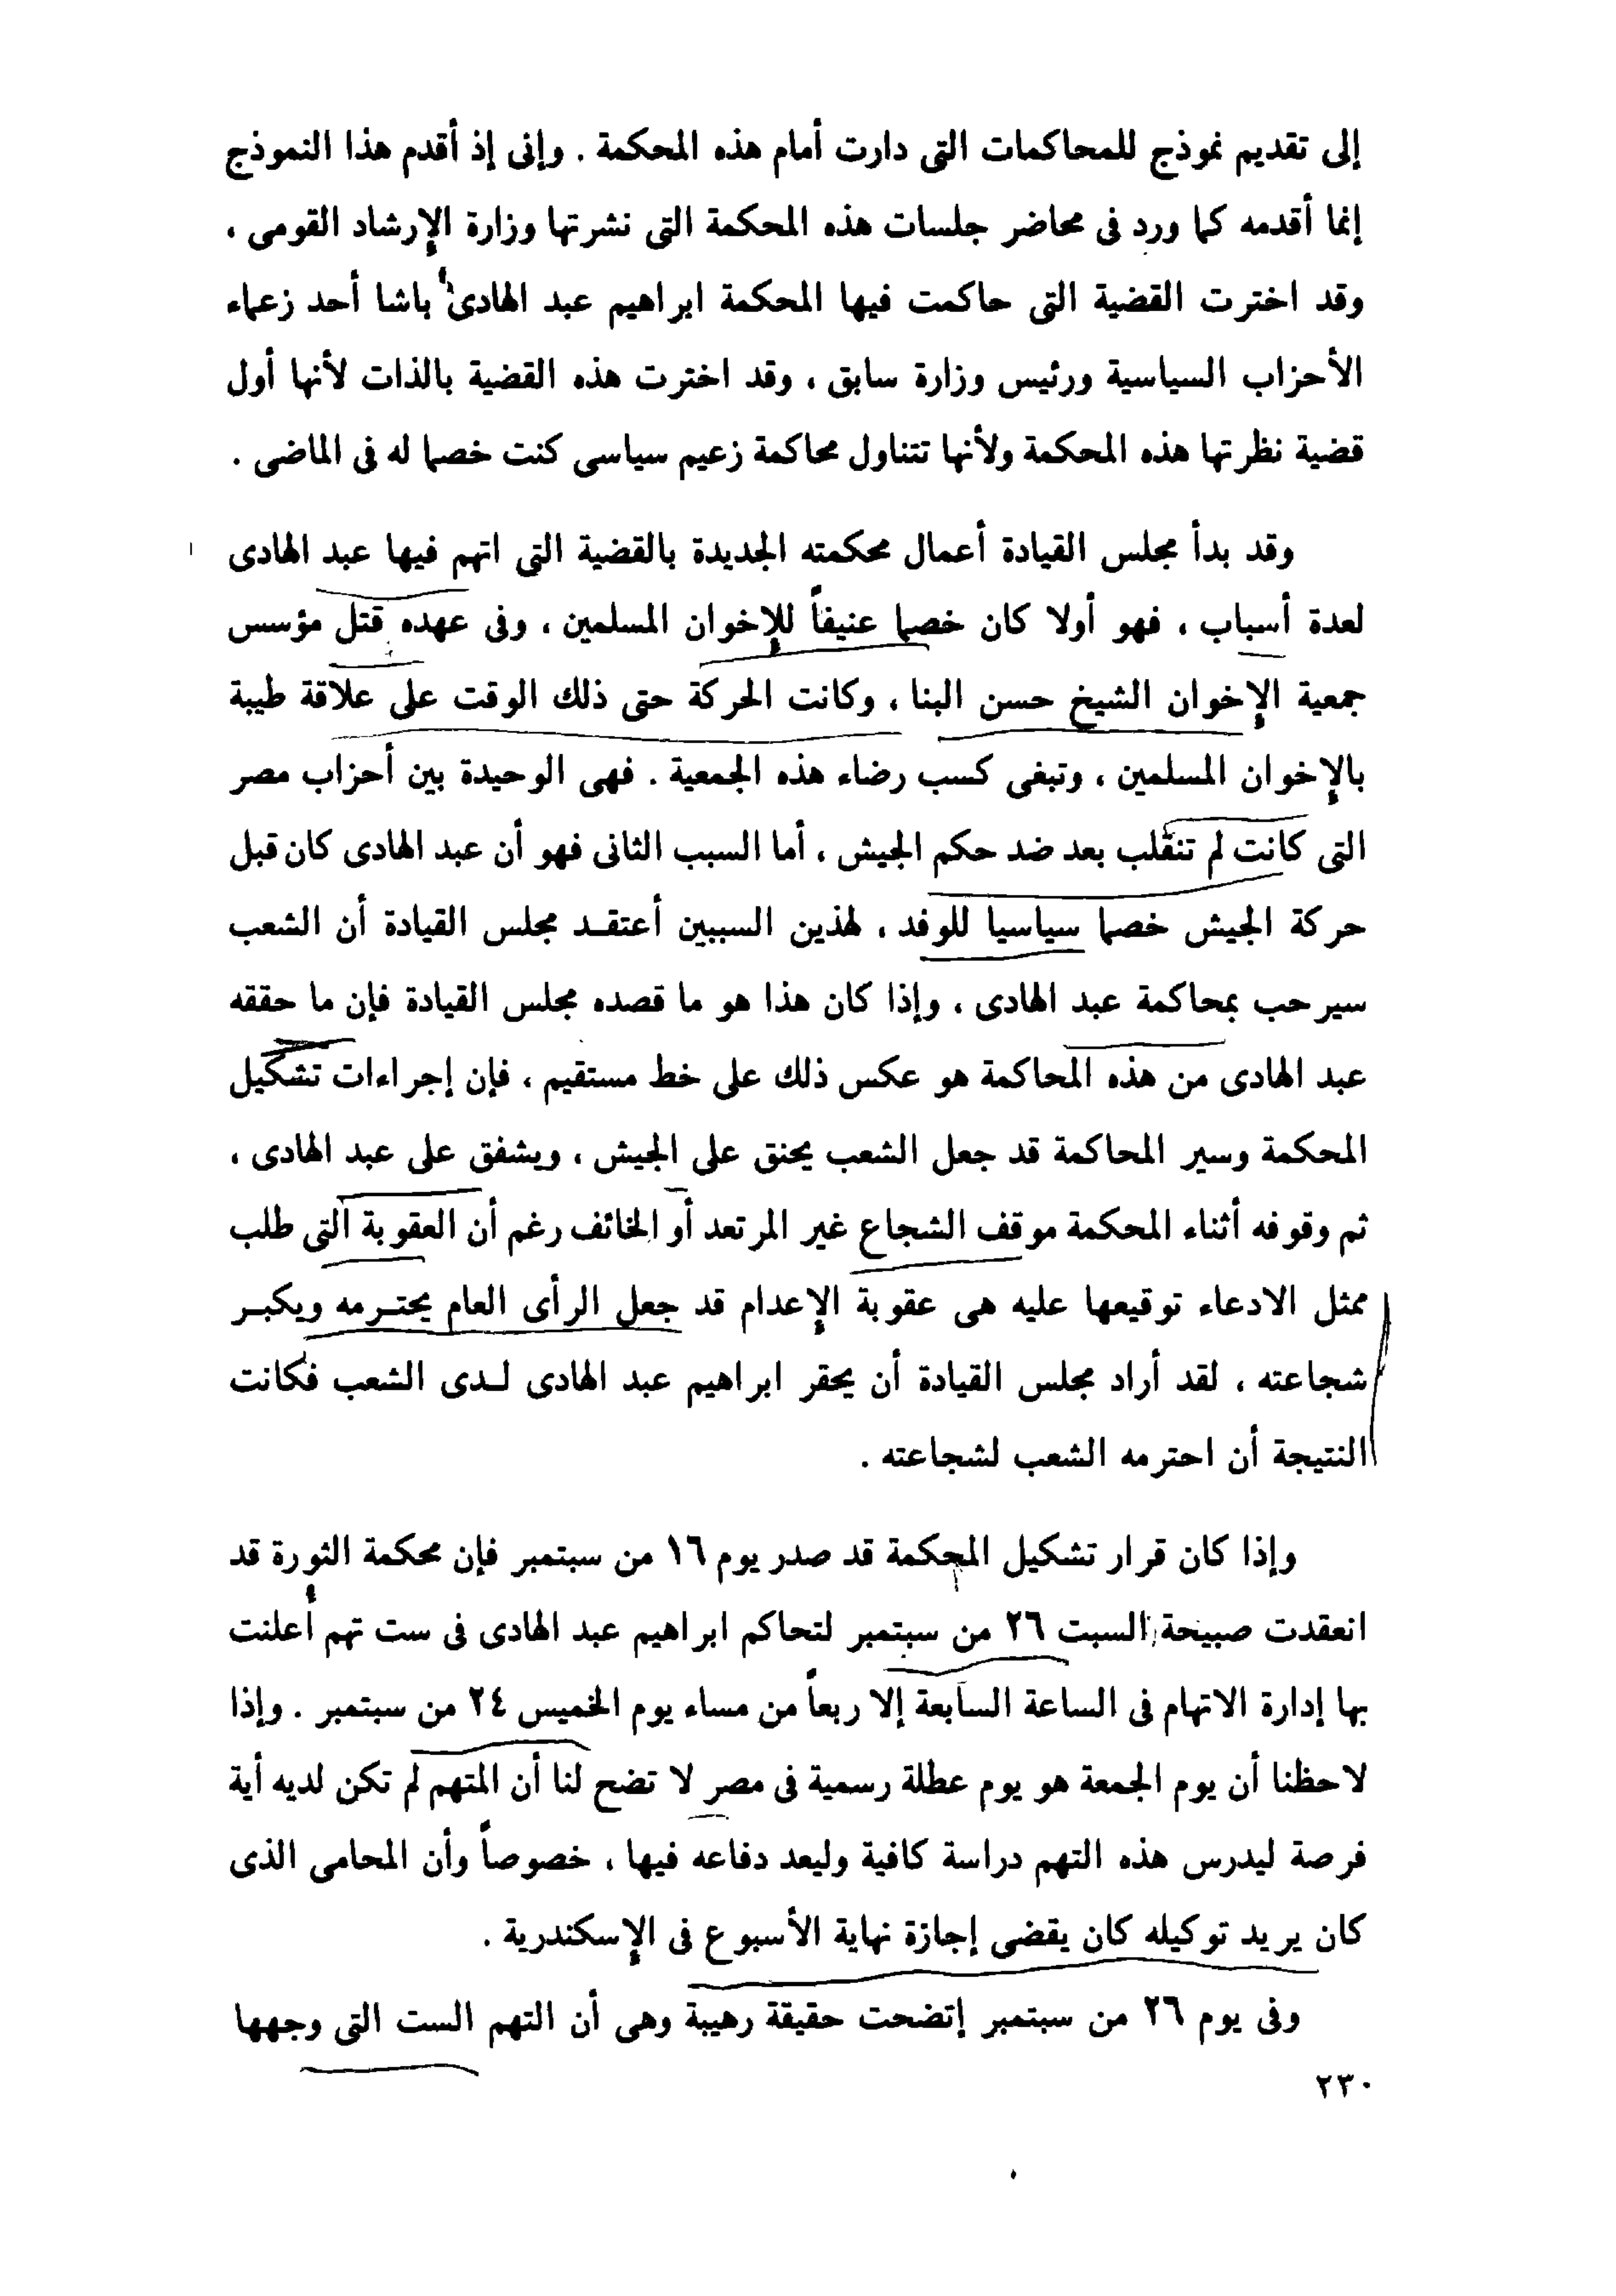 إلى تقديم نموذج للمحاكمات التى دارت أمام هذه المحكمة . وإنى إذ أقدم هذا النموذج
إنما أقدمه كما ورد فى محاضر جلسات هذه المحكمة التى نشرتها وزارة الإرشاد القومى ،
وقد اخترت القضية التى حاكمت فيها المحكمة ابراهيم عبد الهادى باشا أحد زعماء
الأحزاب السياسية ورئيس وزارة سابق ، وقد اخترت هذه القضية بالذات لأنها أول
قضية نظرتها هذه المحكمة ولأنها تتناول محاكمة زعيم سياسى كنت خصما له فى الماضى .
وقد بدأ مجلس القيادة أعمال محكمته الجديدة بالقضية التى اتهم فيها عبد الهادى
لعدة أسباب ، فهو أولا كان خصما عنيفاً للإخوان المسلمين ، وفى عهده قتل مؤسس
جمعية الإخوان الشيخ حسن البنا ، وكانت الحركة حتى ذلك الوقت على علاقة طيبة
بالإخوان المسلمين ، وتبغى كسب رضاء هذه الجمعية . فهى الوحيدة بين أحزاب مصر
التى كانت لم تنقلب بعد ضد حكم الجيش ، أما السبب الثانى فهو أن عبد الهادى كان قبل
حركة الجيش خصما سياسيا للوفد ، لهذين السببين أعتقد مجلس القيادة أن الشعب
سيرحب بمحاكمة عبد الهادى ، وإذا كان هذا هو ما قصده مجلس القيادة فإن ما حققه
عبد الهادى من هذه المحاكمة هو عكس ذلك على خط مستقيم ، فإن إجراءات تشكيل
المحكمة وسير المحاكمة قد جعل الشعب يحنق على الجيش ، ويشفق على عبد الهادى ،
ثم وقوفه أثناء المحكمة موقف الشجاع غير المرتعد أو الخائف رغم أن العقوبة التى طلب
ممثل الادعاء توقيعها عليه هى عقوبة الإعدام قد جعل الرأى العام يحترمه ويكبر
شجاعته ، لقد أراد مجلس القيادة أن يحقر ابراهيم عبد الهادى لدى الشعب فكانت
النتيجة أن احترمه الشعب لشجاعته .
وإذا كان قرار تشكيل المحكمة قد صدر يوم ١٦ من سبتمبر فإن محكمة الثورة قد
انعقدت صبيحة السبت ٢٦ من سبتمبر لتحاكم ابراهيم عبد الهادى فى ست تهم أعلنت
بها إدارة الاتهام فى الساعة السابعة إلا ربعاً من مساء يوم الخميس ٢٤ من سبتمبر . وإذا
لاحظنا أن يوم الجمعة هو يوم عطلة رسمية فى مصر لا تضح لنا أن المتهم لم تكن لديه أية
فرصة ليدرس هذه التهم دراسة كافية وليعد دفاعه فيها ، خصوصاً وأن المحامى الذى
كان يريد توكيله كان يقضى إجازة نهاية الأسبوع فى الإسكندرية .
وفى يوم ٢٦ من سبتمبر إتضحت حقيقة رهيبة وهى أن التهم الست التى وجهها
٢٣٠